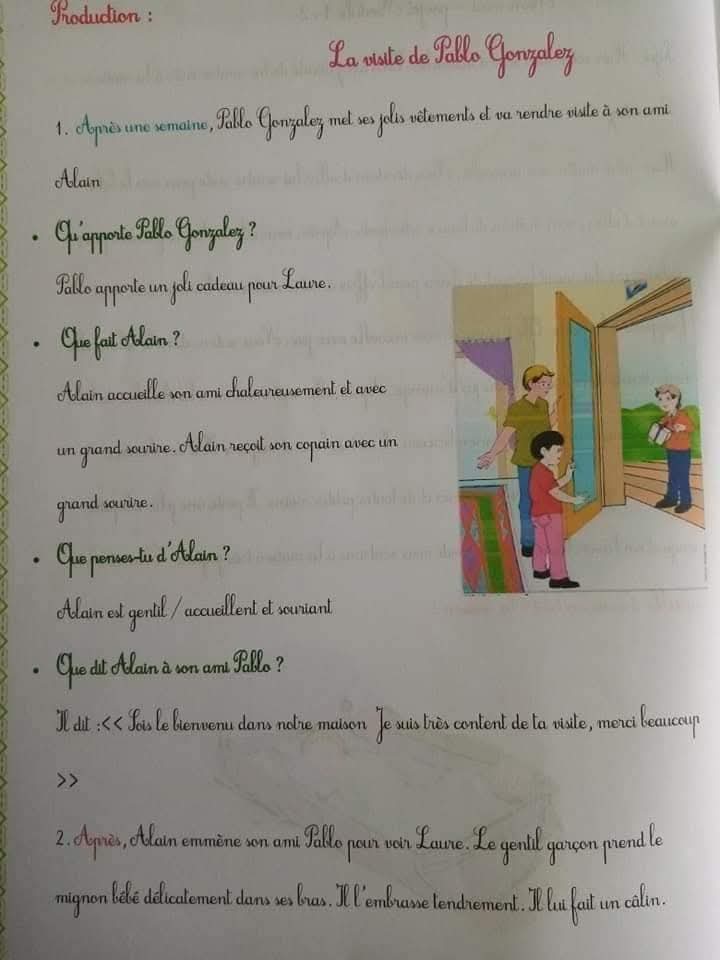 Production :
La visite de Pablo Gonzalez
1. Après une semaine, Pablo Gonzalez met ses jolis vêtements et va rendre visite à son ami
Alain
• Qu'apporte Pablo Gonzalez ?
Pablo apporte un joli cadeau pour Laure.
• Que fait Alain ?
Alain accueille son ami chaleureusement et avec
un grand sourire. Alain reçoit son copain avec un
grand sourire.
• Que penses-tu d'Alain ?
Alain est gentil / accueillent et souriant
• Que dit Alain à son ami Pablo ?
Il dit :<< Sois le bienvenu dans notre maison Je suis très content de ta visite, merci beaucoup
>>
2. Après, Alain emmène son ami Pablo pour voir Laure. Le gentil garçon prend le
mignon bébé délicatement dans ses bras. Il l'embrasse tendrement. Il lui fait un câlin.